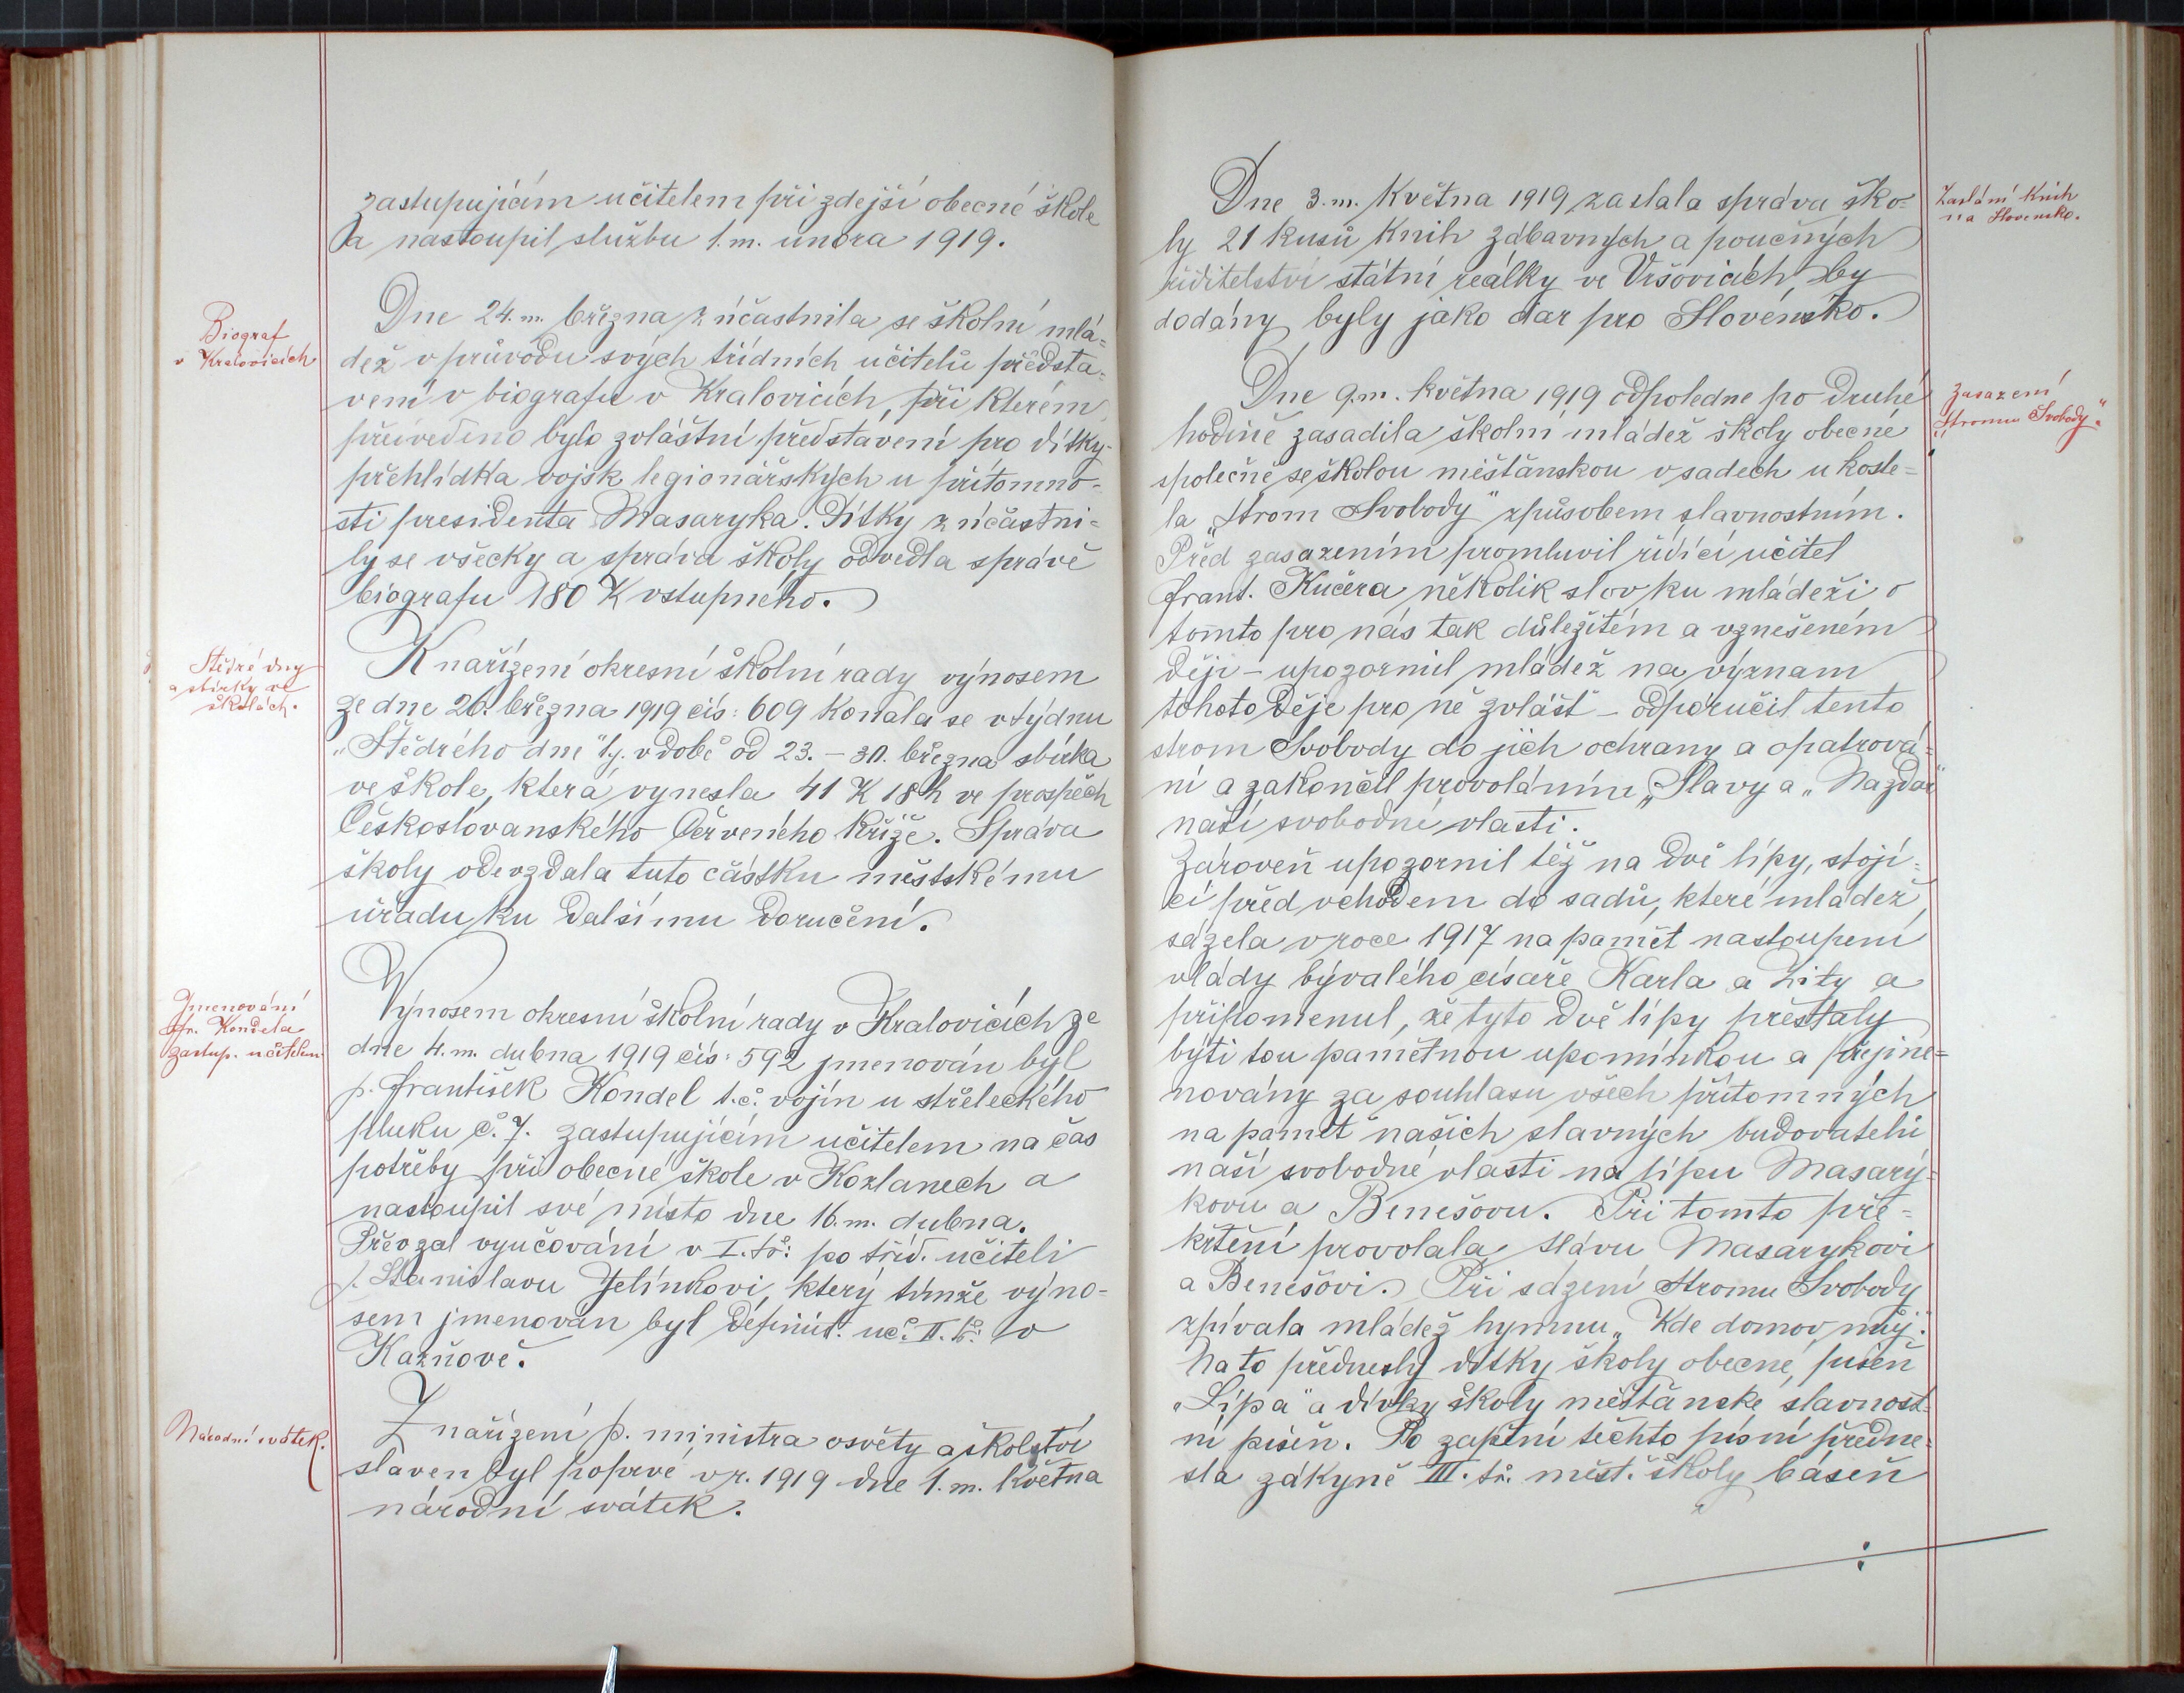 zastupujícím učitelem při zdejší obecné škole
a nastoupil službu 1. m. února 1919.
Biograf
v Kralovicích
Dne 24. m. března zúčastnila se školní mlá=
dež v průvodu svých třídních učitelů předsta=
vení v biografu v Kralovicích, při kterém
přivedeno bylo zvláštní představení pro dítky-
přehlídka vojsk legionářských u přítomno=
sti presidenta Masaryka. Dítky zúčastni=
ly se všecky a správa školy odvedla správě
biografu 180 K vstupného.
Štědré dny
a sbírky ve
školách.
K nařízení okresní školní rady výnosem
ze dne 20. března 1919 čís: 609 konala se v týdnu
„Štědrého dne" tj. v době od 23. – 30. března sbírka
ve škole, která vynesla 41 K 18 h ve prospěch
Československého Červeného Kříže. Správa
školy odevzdala tuto částku městskému
úřadu ku dalšímu doručení.
Jmenování
Fr. Kondela
zastup. učitelem
Výnosem okresní školní rady v Kralovicích ze
dne 4. m. dubna 1919 čís: 592 jmenován byl
p. František Kondel t. č. vojín u střeleckého
pluku č. 7. zastupujícím učitelem na čas
potřeby při obecné škole v Kozlanech a
nastoupil své místo dne 16. m. dubna.
Převzal vyučování v I. tř: po tříd. učiteli
p. Stanislavu Jelínkovi, který tímže výno=
sem jmenován byl definit. uč. II. tř: v
Kazňově.
Národní svátek.
Z nařízení p. ministra osvěty a školství
slaven byl poprvé v r. 1919 dne 1. m. května
národní svátek.
Zaslání knih
na Slovensko.
Dne 3. m. května 1919 zaslala správa ško=
ly 21 kusů knih zábavných a poučných
řiditelství státní reálky ve Vršovicích, by
dodány byly jako dar pro Slovensko.
Zasazení
„Stromu Svobody."
Dne 9. m. května 1919 odpoledne po druhé
hodině zasadila školní mládež školy obecné
společně se školou měšťanskou v sadech u koste=
la „Strom Svobody" způsobem slavnostním.
Před zasazením promluvil řídící učitel
Frant. Kučera několik slov ku mládeži o
tomto pro nás tak důležitém a vznešeném
ději – upozornil mládež na význam
tohoto děje pro ně zvlášť – odporučil tento
strom Svobody do jich ochrany a opatrová=
ní a zakončil provoláním „Slávy a „Nazdar"
naší svobodné vlasti.
Zároveň upozornil též na dvě lípy, stojí=
cí před vchodem do sadů, které mládež
sázela v roce 1917 na pamět nastoupení
vlády bývalého císaře Karla a Zity a
připomenul, že tyto dvě lípy přestaly
býti tou pamětnou upomínkou a přejme=
novány za souhlasu všech přítomných
na pamět našich slavných budovatelů
naší svobodné vlasti na lípu Masary=
kovu a Benešovu. Při tomto pře=
křtění provolala slávu Masarykovi
a Benešovi. Při sázení Stromu Svobody
zpívala mládež hymnu „Kde domov můj".
Na to přednesly dítky školy obecné píseň
„Lípa" a dívky školy měšťanské slavnost=
ní píseň. Po zapění těchto písní předne=
sla žákyně III. tř. měst. školy báseň